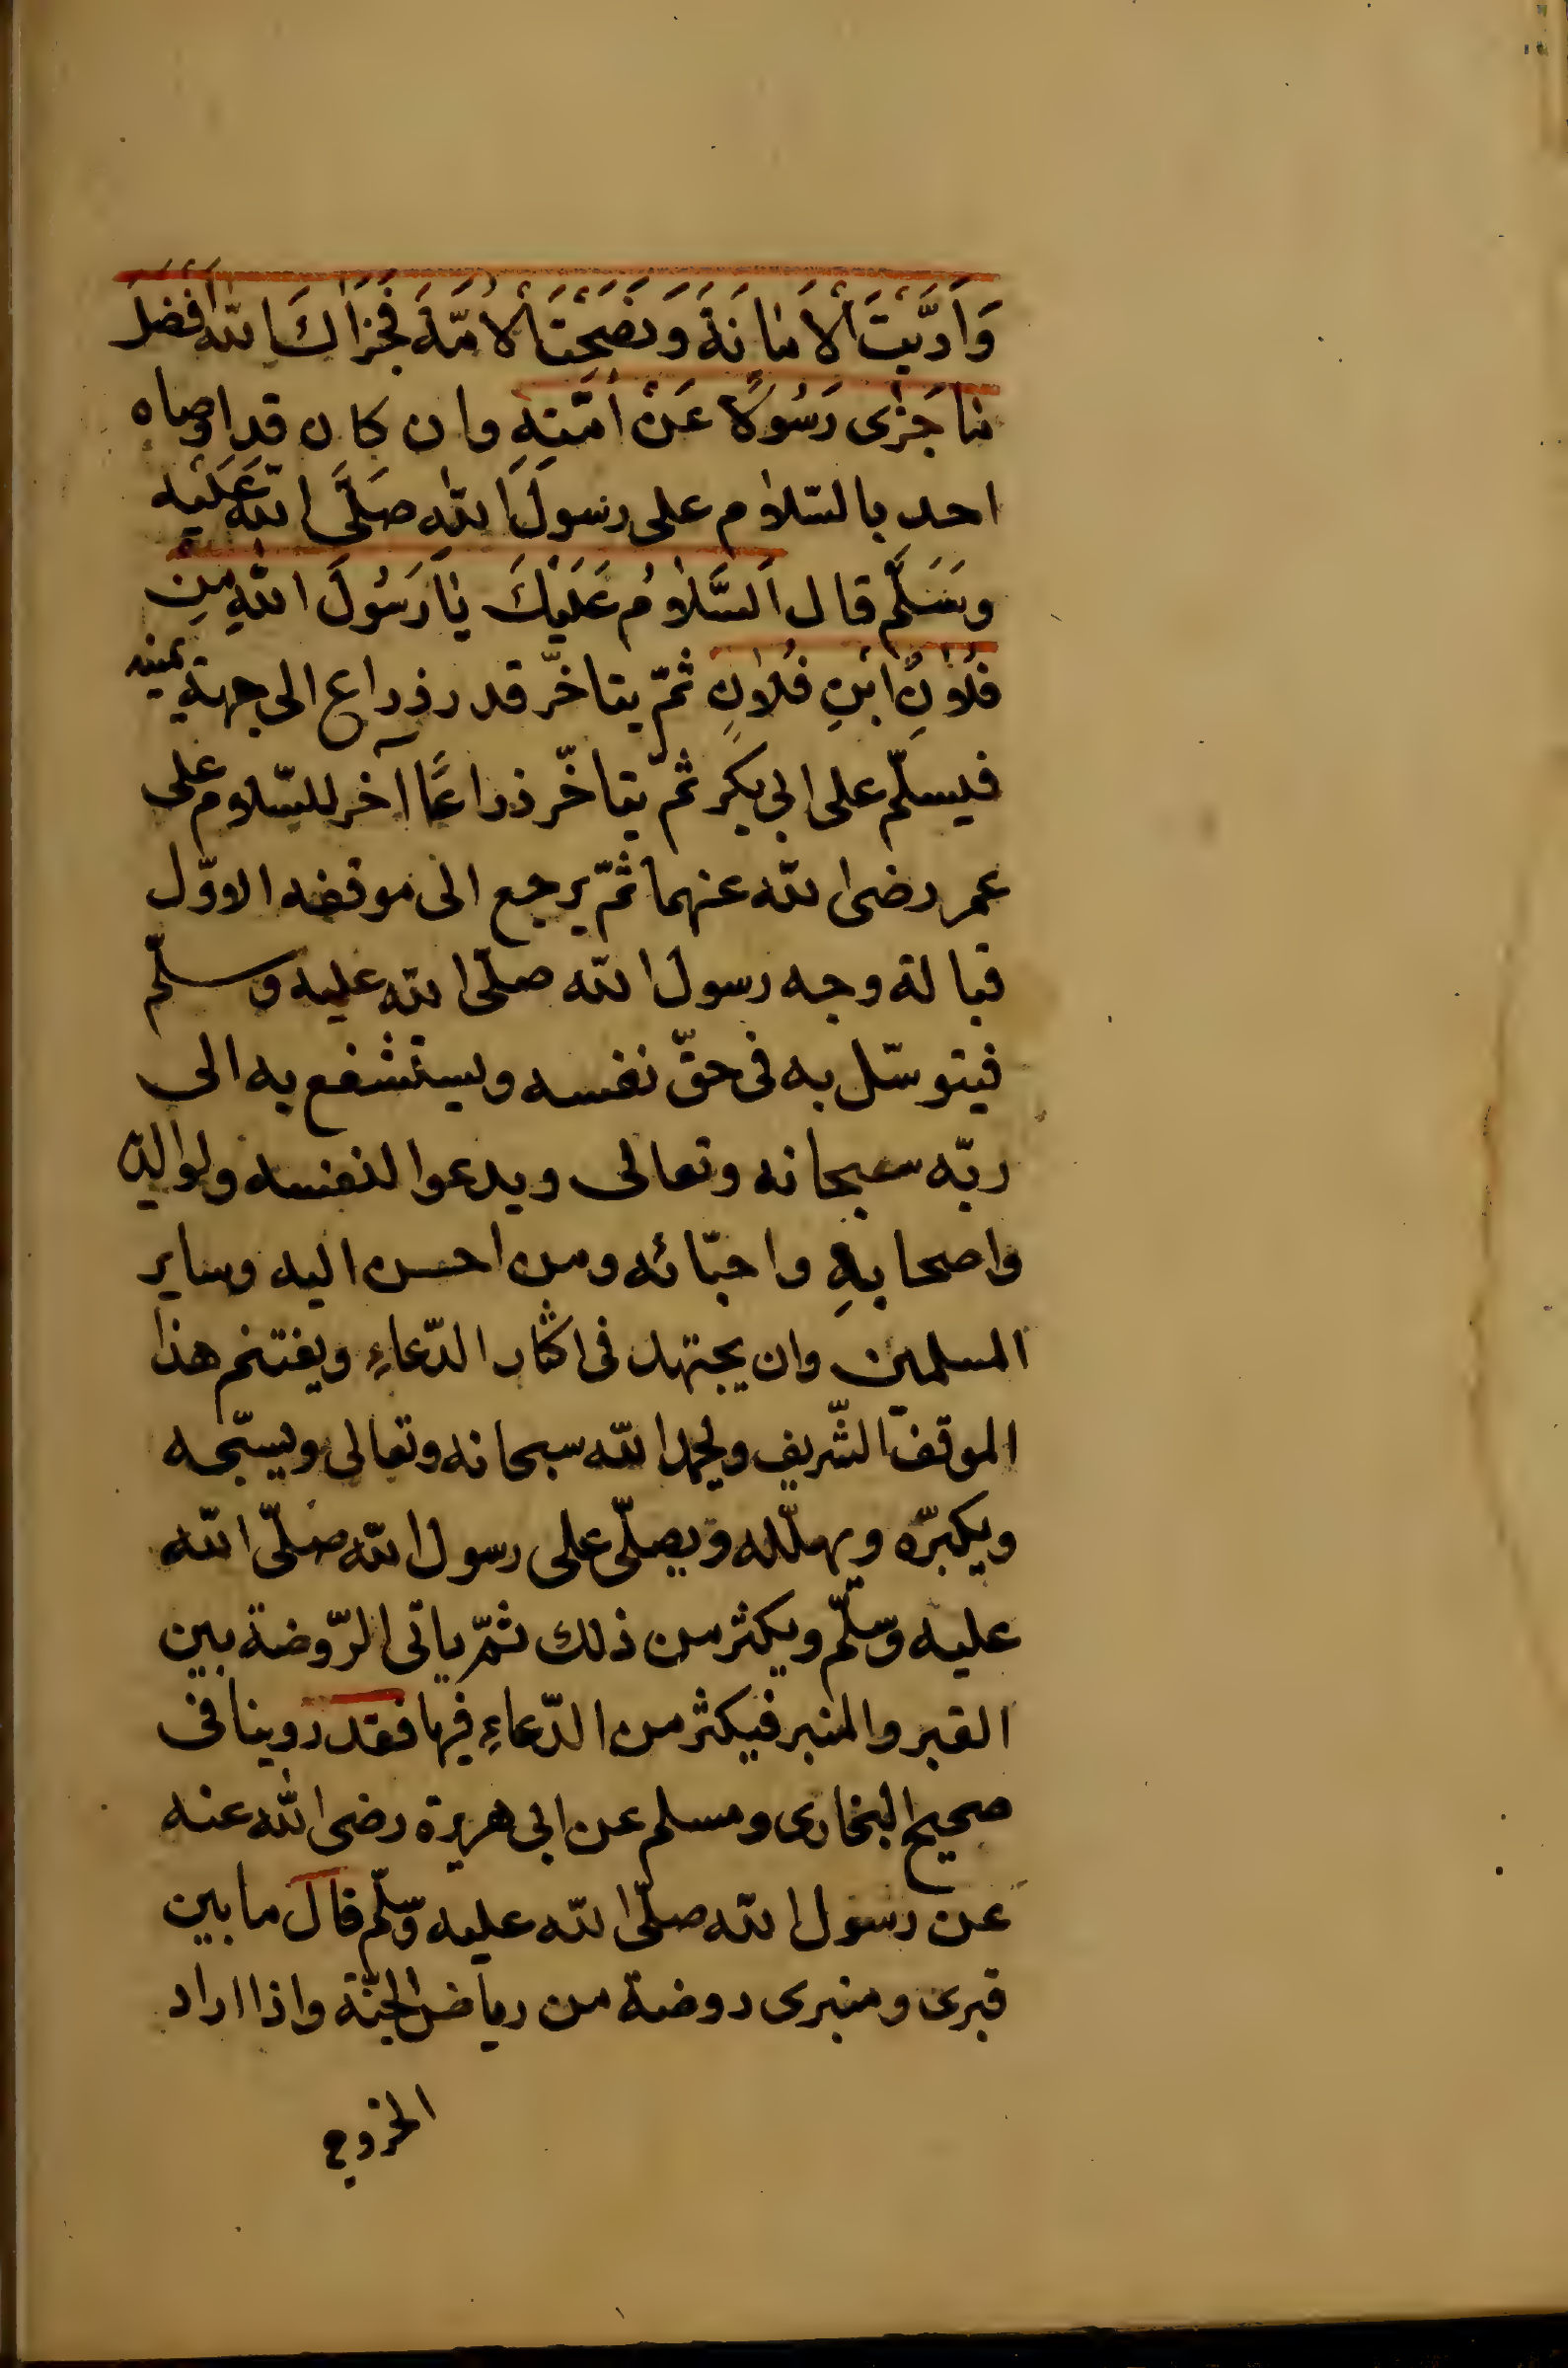 وَاَدَّيْتَ الْاَمَانَةَ وَنَصَحْتَ الْاُمَّةَ فَجَزَاكَ اللّٰهُ اَفْضَلَ
مَا جَزٰى رَسُولًا عَنْ اُمَّتِهِ وان كان قد اوصاه
احد بالسّلام على رسولَ اللّٰهِ صَلَّى اللّٰه عَلَيْهِ
وَسَلَّم قال اَلسَّلَامُ عَلَيْكَ يَا رَسُولَ اللّٰهِ مِنْ
فُلَانٍ ابْنِ فُلَانٍ ثمّ يتاخّر قدر ذراع الى جهة يمينه
فيسلّم على ابى بكر ثمّ يتاخّر ذراعًا آخر للسّلام على
عمر رضى اللّه عنهما ثمّ يرجع الى موقفه الاوّل
قبالة وجه رسول اللّه صلّى اللّه عليه وسلّم
فيتوسّل به فى حقّ نفسه ويستشفع به الى
ربّه سبحانه وتعالى ويدعوا لنفسه ولوالديه
واصحابهِ واحبّائه ومن احسن اليه وساير
المسلمين وان يجتهد فى اكثار الدّعاءِ ويغتنم هذا
الموقف الشّريف ويحمد اللّه سبحانه وتعالى ويسبّحه
ويكبّره ويهلّله ويصلّى على رسول اللّه صلّى اللّه
عليه وسلّم ويكثر من ذلك ثمّ ياتى الرّوضة بين
القبر والمنبر فيكثر من الدّعاءِ فيها فقد روينا فى
صحيح البخارى ومسلم عن ابى هريرة رضى اللّه عنه
عن رسول اللّه صلّى اللّه عليه وسلّم قال ما بين
قبرى ومنبرى روضة من رياض الجنّة واذا اراد
الخروج